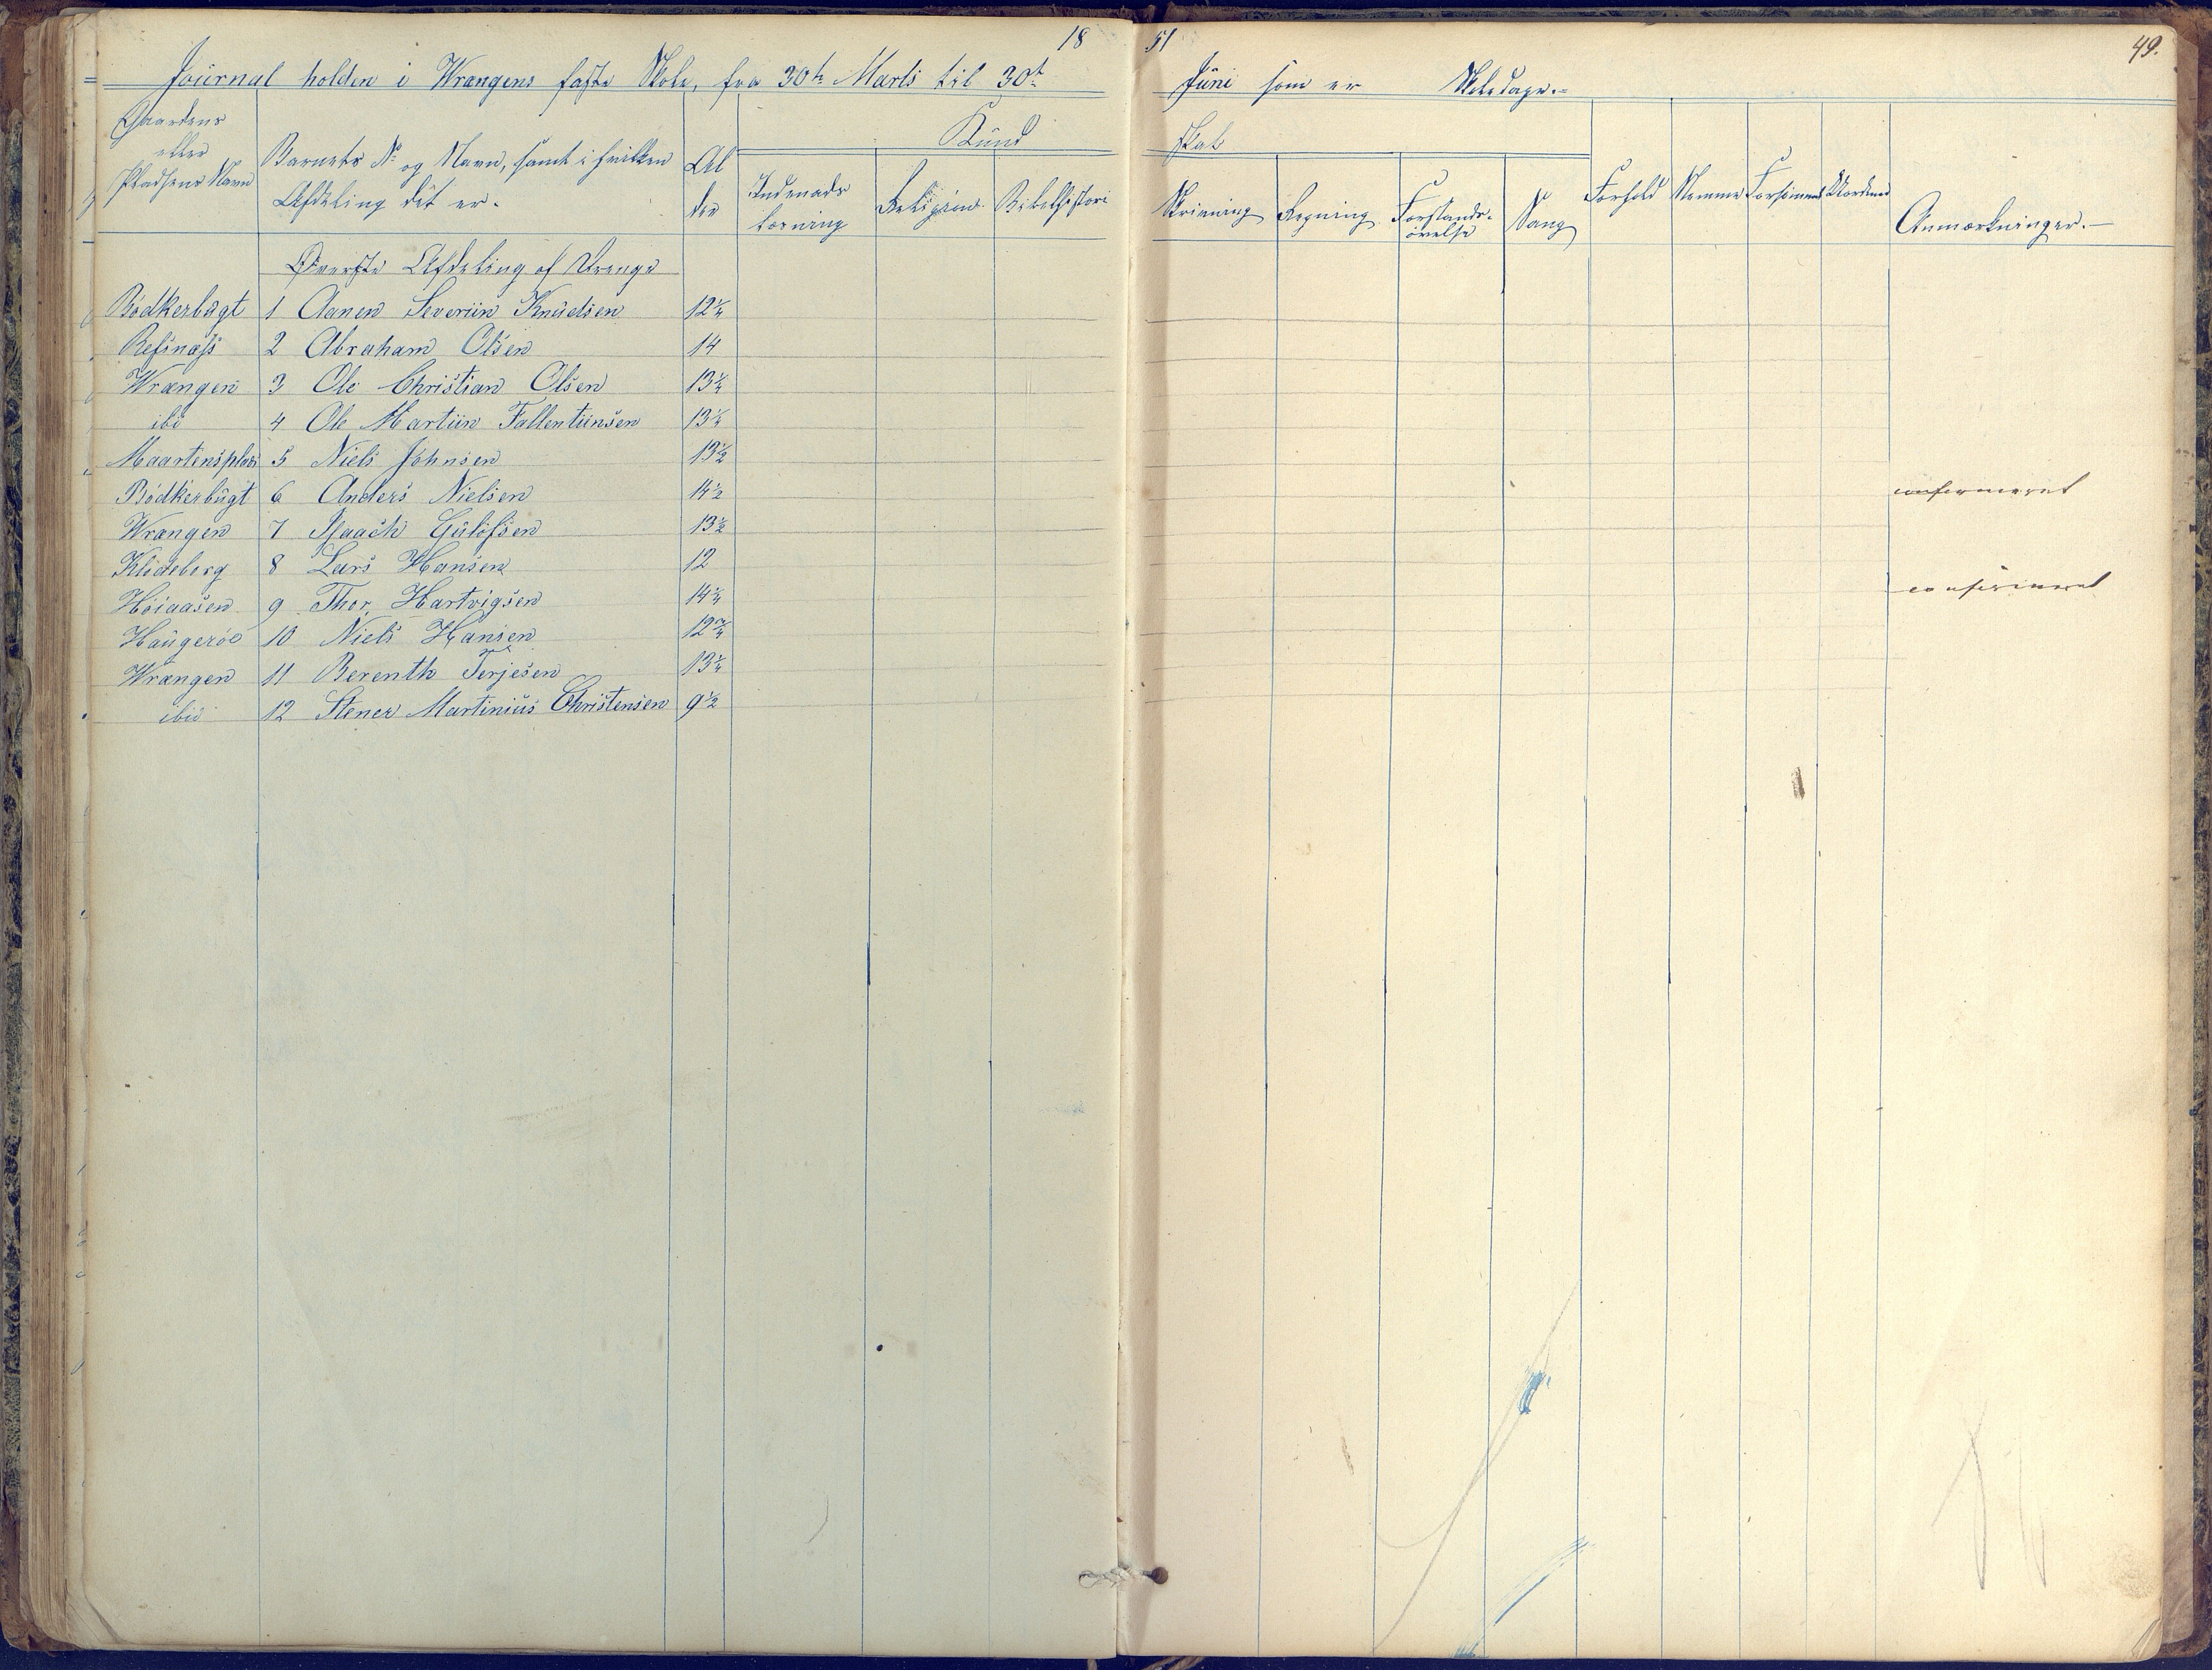 18 51
49.
Journal holden i Wrængens faste Skole, fra 30te Marts til 30te Juni som er Skoledage.
Gaardens eller Pladsens Navn
Barnets No og Navn, samt i hvilken Afdeling det er.
Alder
Kundskab
Indenadslæsning
Religion
Bibelhistori
Skrivning
Regning
Forstandsøvelse
Sang
Forhold
Nemme
Forsømmel
Anmærkninger.
Øverste Afdeling af Drenge
Bødkerbugt 1 Aanen Severiin Knudsen 12¼
Refsnæss 2 Abraham Olsen 14
Wrængen 3 Ole Christian Olsen 13¼
ibi 4 Ole Martiin Fallentiinsen 13¼
Maartensplads 5 Niels Johnsen 13½
Bødkerbugt 6 Anders Nielsen 14½ confirmeret
Wrængen 7 Isaach Gulofsen 13½
Klødeberg 8 Lars Hansen 12
Høiaasen 9 Thor Hartvigsen 14¼ confirmeret
Haugerøe 10 Niels Hansen 12¾
Wrængen 11 Berenth Terjesen 13¼
ibid 12 Stener Martinius Christensen 9½